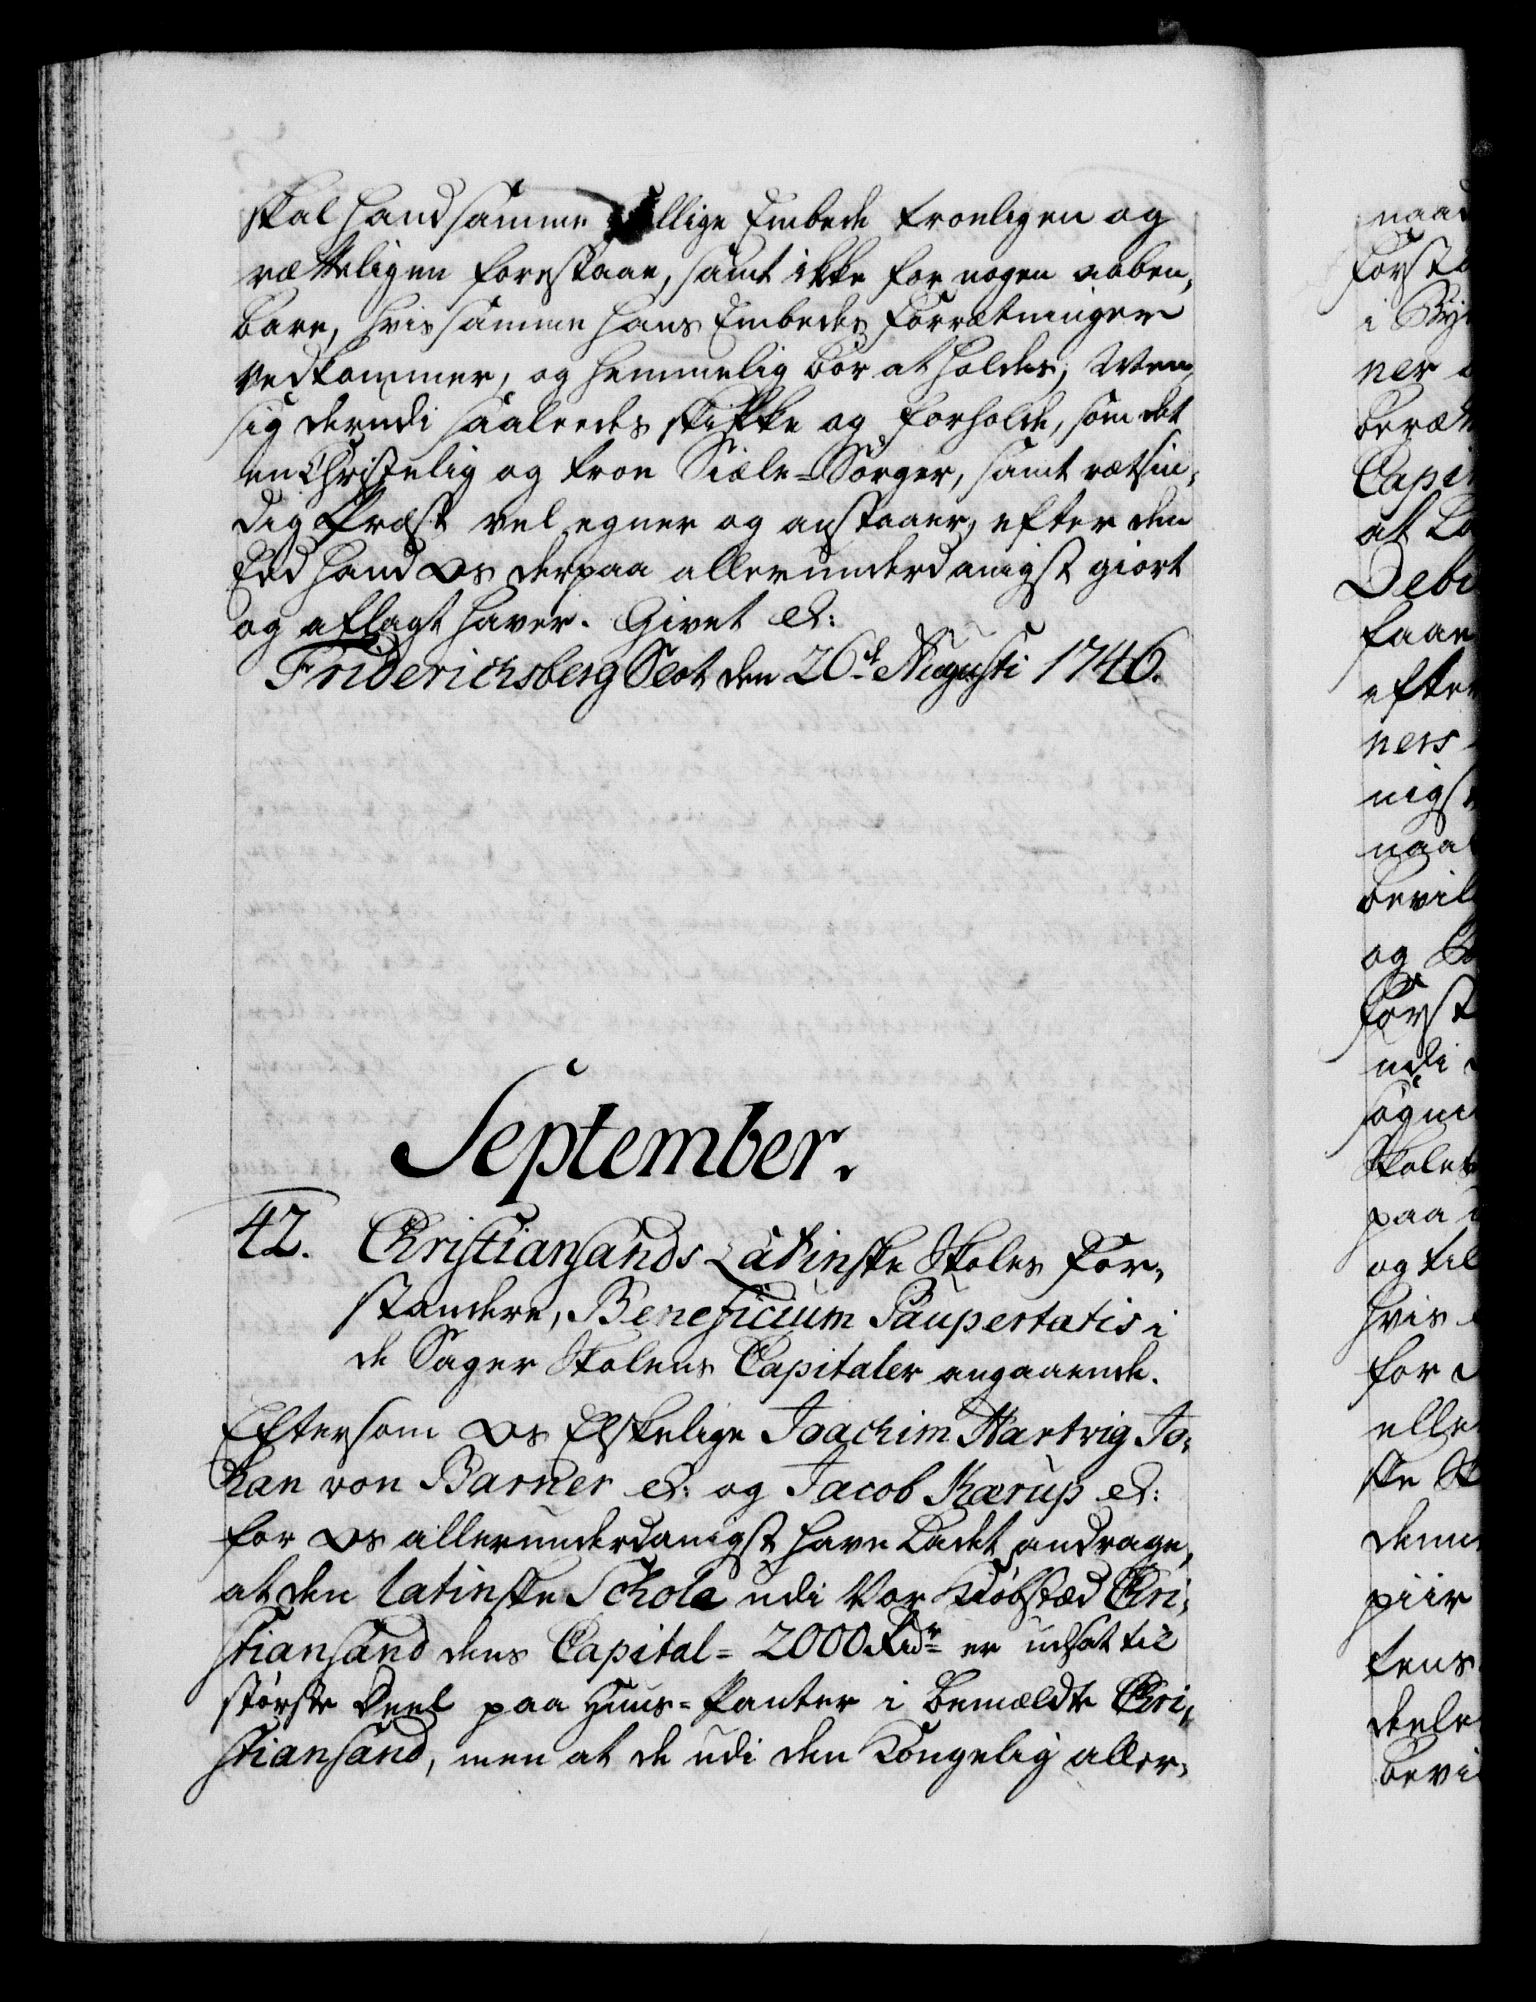 skal hand samme hellige Embede troeligen og
rætteligen forestaae, samt ikke for nogen aaben,
bare, hvis samme hans Embedes Forretninger
vedkommer, og hemmelig bør at holdes; Men
sig derudi saaledes skikke og forholde, som det
en Christelig og troe Siæle-Sørger, samt rætsin,
dig Præst vel egner og anstaaer, efter den
Eed hand Os derpaa allerunderdanigst giort
og aflagt haver. Givet &:
Friderichsberg Slot den 26de Augusti 1746.
September.
42. Christiansands Latinske Skoles For,
standere, Beneficium Paupertatis i
de Sager Skolens Capitaler angaaende.
Eftersom Os Elskelige Joachim Hartvig Jo,
han von Barner &: og Jacob Kærup &:
for Os allerunderdanigst have ladet andrage,
at den latinske Schole udi Vor Kiøbstæd Chri,
stiansand dens Capital = 2000 Rdr er udsat til
største Deel paa Huus-Panter i bemældte Chri,
stiansand, men at de udi den Kongelig aller,
naad
Forsta
i By
ner
beræt
Capi
at
Debi
faae
efter
ners
nigst
naad
bevil
og
Forst
udi
søgn
Skole
paa
og til
hvis
for
elle
ske
denn
piir
tens
deele
bevi